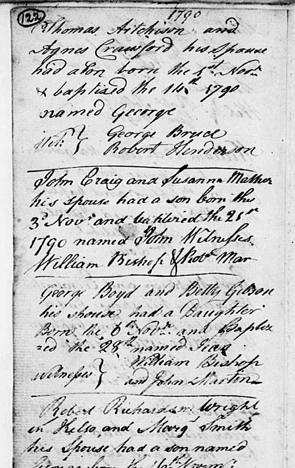 1790
122
Thomas Aitchison and
Agnes Crawford his Spouse
had a son born the 1st Novr
& baptised the 14 1790
named George
Witn } George Boyd
Robert Henderson
John Craig and Susanna Mather
his Spouse had a son born this
3d Novr and baptized the 21st
1790 named John Witnesses
William Bishop & Robt Mar
George Boyd and Betty Gibson
his spouse had a Daughter
Born the 6 Novr and Baptiz
ed the 28th named
Witnesses } William Bishop
and John Martin
Robert Richardson Wright
in Kelso and Margt Smith
his Spouse had a son named